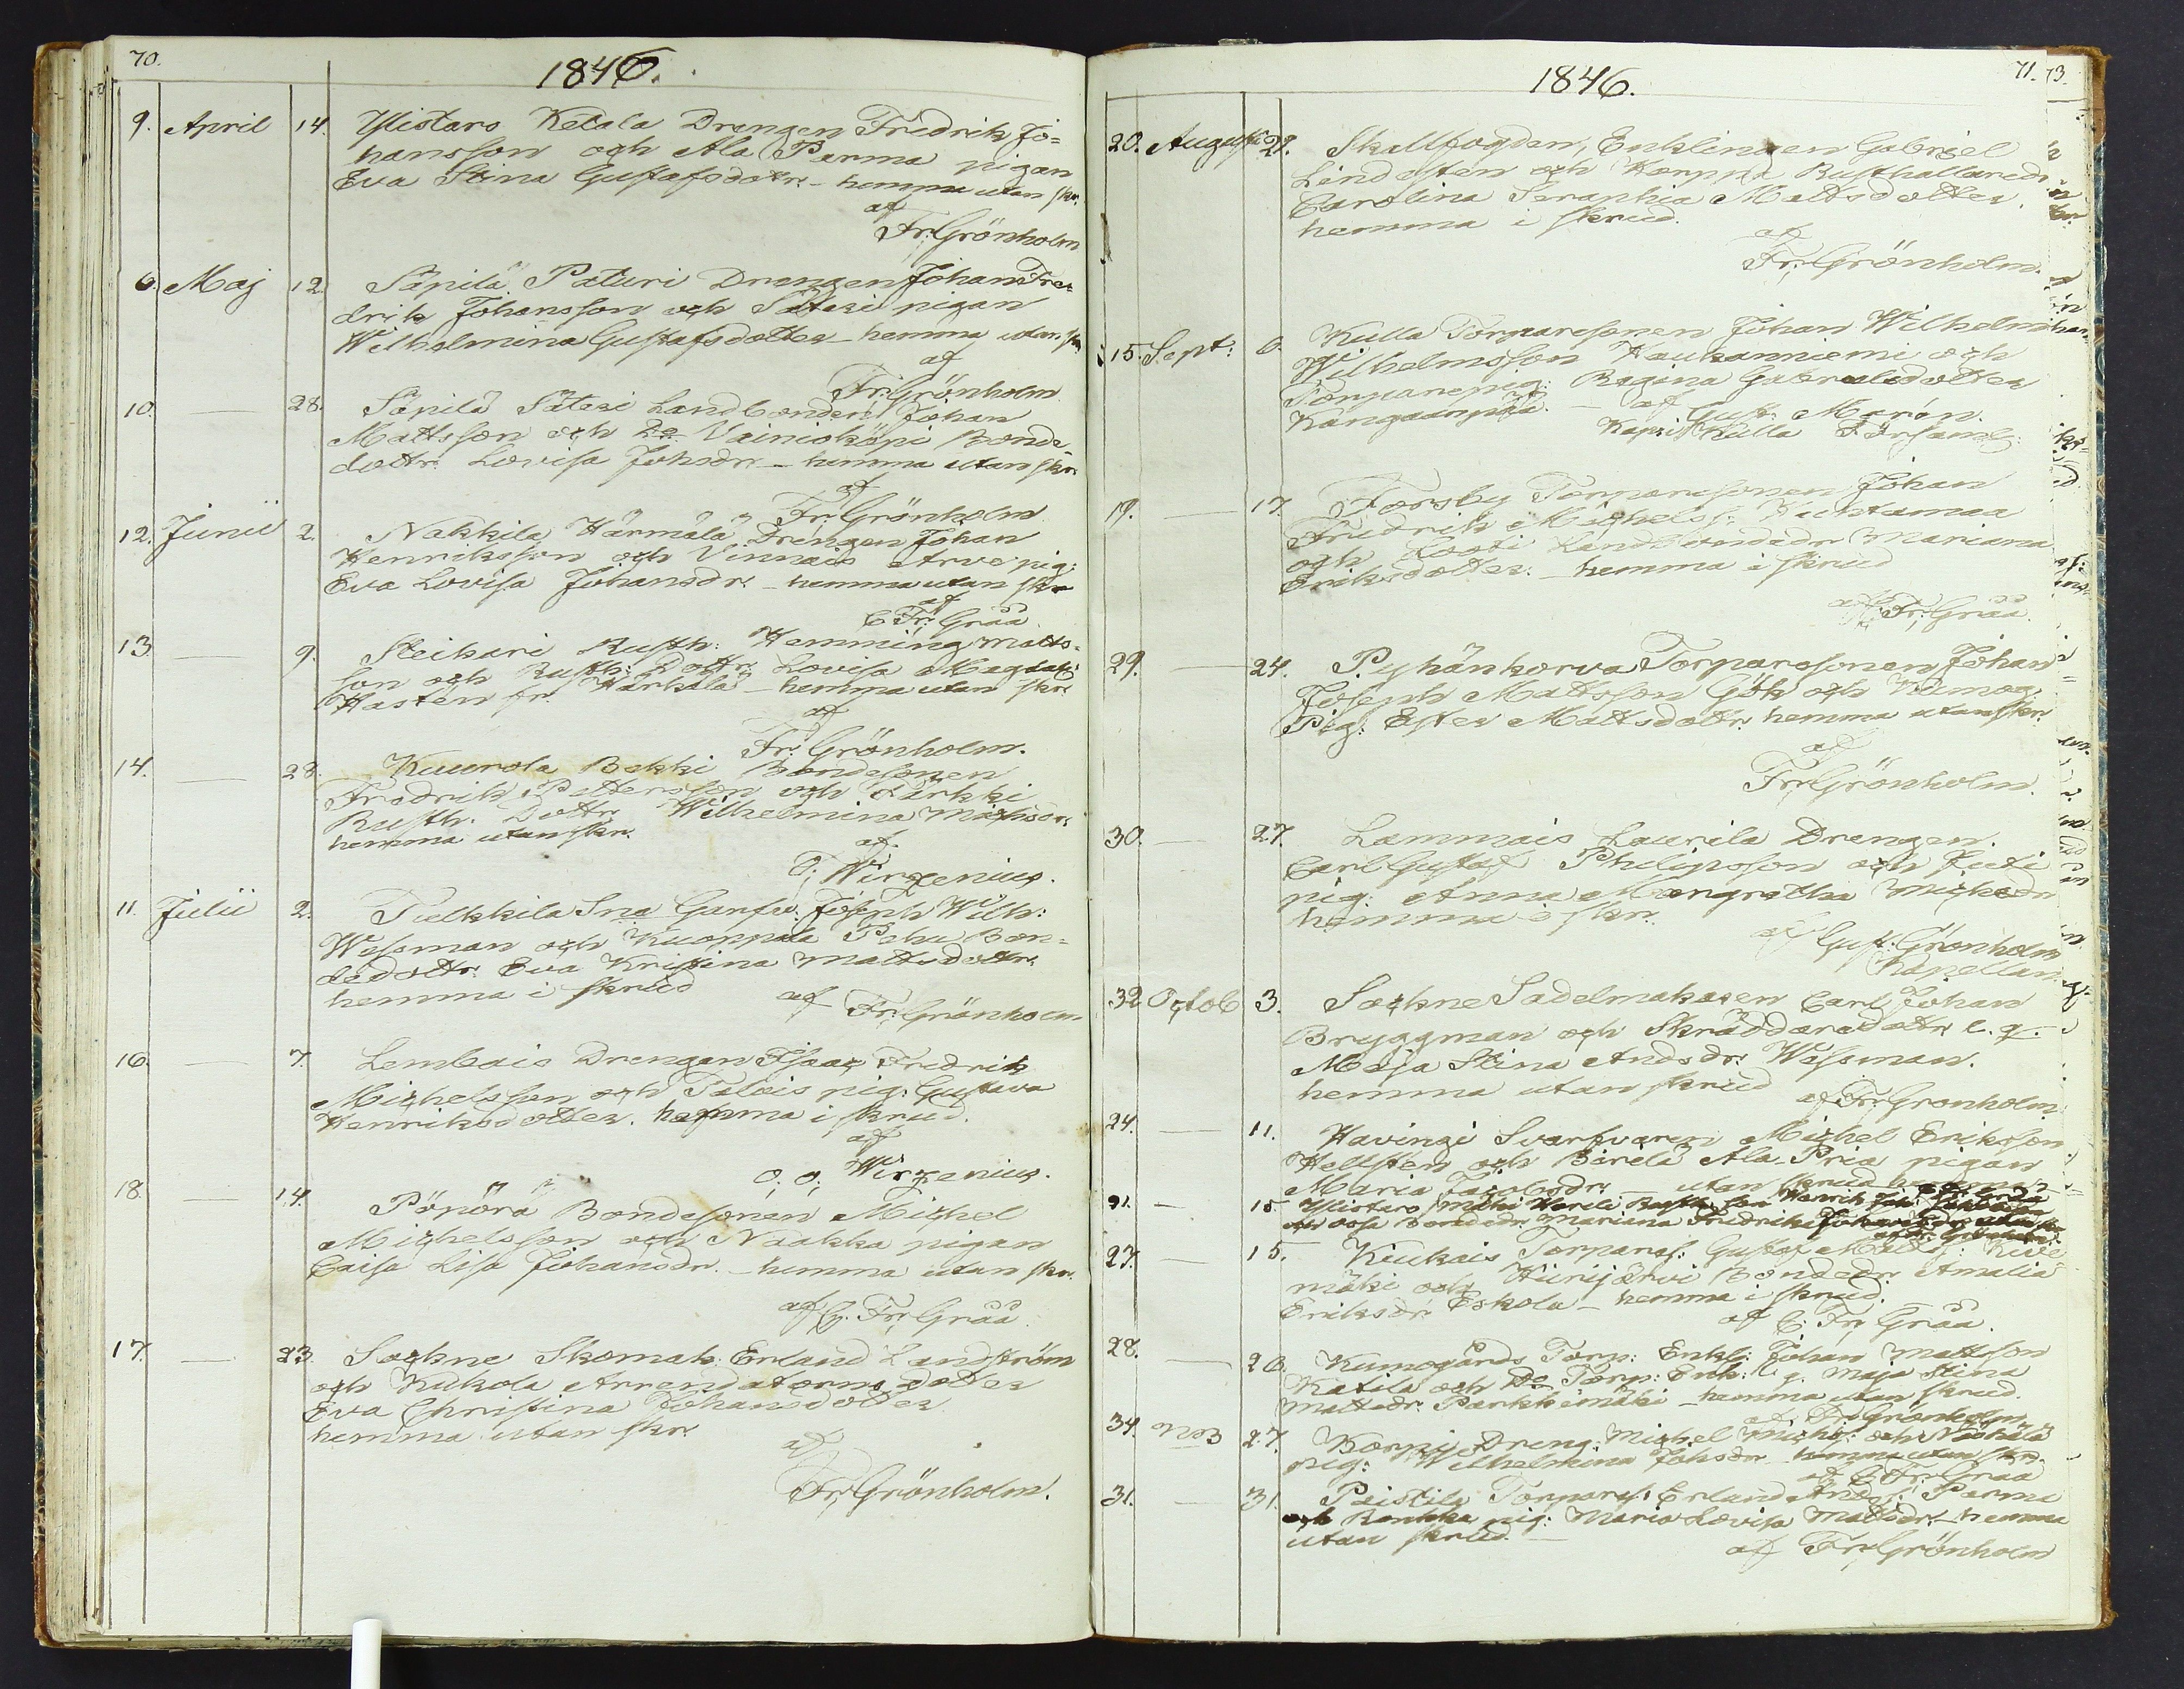 70.
1846.
9. April 14. Ylistaro Ketala Drengen Fredrik Jo=
hansson och Ala Parma pigan
Eva Stina Gustafsdotr. - hemma utan skr.
af
Fr: Grönholm
6. Maj 12. Säpilä Paturi Drengen Johan Fre=
drik Johansson och Säteri pigan
Wilhelmina Gustafsdotter - hemma utan skr.
af
Fr: Grönholm
10. — 28. Säpilä Säteri Landbonden Johan
Mattsson och Do Vainioköpi Bonde=
dottr. Lovisa Johsdr. - hemma utan skr.
af
Fr: Grönholm
12. Junii 2. Nakkila Härmälä Drengen Johan
Henriksson och Vinnais Arve pig:
Eva Lovisa Johansdr. - hemma utan skr
af
C Fr: Gråå.
13. — 9. Steikari Rusth: Hemming Matts=
son och Rusth: Dottr. Lovisa Magdal:
Hasten fr. Härkälä - hemma utan skr.
af
Fr: Grönholm.
14. — 28. Kuurola Bekki Bondesonen
Fredrik Pettersson och Färkki
Rusth. Dottr. Wilhelmina Michsdr.
hemma utan skr.
af
O; Wirzenius.
11. Julii 2. Tulkkila Sna Gunfv. Joseph Wilh:
Wessman och Kuoppala Pehu Bon=
dedottr. Eva Kristina Mattsdottr.
hemma i skrud
af Fr: Grönholm
16. — 7. Lembois Drengen Isaac Fredrik
Michelsson och Talois pig: Gustava
Henriksdotter. hemma i skrud.
af
O. O; Wirzenius.
18. — 14. Pönörä Bondesonen Michel
Michelsson och Naakka pigan
Caisa Lisa Johansdr. - hemma utan skr.
af C. Fr; Gråå.
17. — 23. Sockne Skomak: Erland Landström
och Kukola Arrendatorns dotter
Eva Christina Johansdotter
hemma utan skr.
af
Fr; Grönholm.
1846.
71. 73.
20. Augusti 21. Skallfogden, Enklingen Gabriel
Lindsten och Korppa Rusthallaredr
Carolina Seraphia Mattsdotter.
hemma i skrud.
af
Fr: Grönholm.
15. Sept: 6. Kulla Torparesonen Johan Wilhelm
Wilhelmsson Haukanniemi och
Torparepig: Regina Gabrielsdotter
Kangaanpää. af Gust: Marén.
Kapri Kulla Församlg:
19. — 17. Forsby Torparesonen Johan
Fredrik Michelss: Kuhtamaa
och Kooti Landbondedr Mariana
Eriksdotter. - hemma i skrud
af Fr; Gråå.
29. — 24. Pyhänkorva Torparesonen Johan
Joseph Mattsson Gök och Kumog:
Pig: Ester Mattsdottr. hemma utan skr.
af
Fr: Grönholm.
30. — 27. Lammais Laurila Drengen.
Carl Gustaf Philipsson och Juti
pig: Anna Margretha Michsdr
hemma i skr.
af Gust: Grönholm
Kapellan
32 Octob 3. Sockne Sadelmakaren Carl Johan
Bryggman och Skräddaredottr. l. q.
Maja Stina Andsdr. Wessman.
hemma utan skrud
af Fr: Grönholm.
24. — 11. Havingi Svarfvaren Michel Eriksson
Hellsten och Birilä Ala-Pria pigan
Maria Jacobsdr. utan skrud hemma
21. — 15 Ylistaro Mäki Hareli Rusth. son Henrik Joh:
Bondedr. Mariana Fredrika
af Fr: Grönholm.
27. — 15. Kiukais Torpares: Gustaf Matts: Kive
mäki och Hiirijärvi Bondedr. Amalia
Eriksdr. Eskola - hemma i skrud.
af C. Fr; Gråå.
28. — 26. Kumogårds Torp: Enkl: Johan Mattsson
Katila och Do Torp: Enk: l. q. Maja Stina
Mattsdr. Parkkimäki - hemma utan skrud.
af Fr: Grönholm.
34. Nov 27. Korpi Dreng. Michel Michs: och Näohälä
pig: Wilhelmina Johsdr. hemma utan skr.
af C. Fr: Gråå
31. — 31. Peistilä Torpares: Erland Ands: Parma
och Ronkka pig: Maria Lovisa Mattsdr. - hemma
utan skrud. —
af Fr: Grönholm